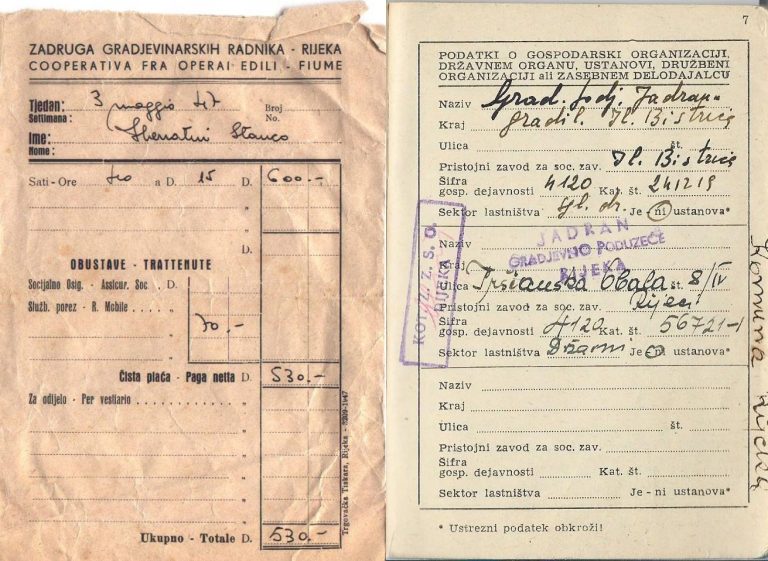 ZADRUGA GRADJEVINARSKIH RADNIKA - RIJEKA
COOPERATIVA FRA OPERAI EDILI - FIUME
Tjedan: 3 maggio 47 Broj
Settimana: No.
Ime: Stanco
Nome:
Sati - Ore a D. 15 D. 600.-
D.
OBUSTAVE - TRATTENUTE
Socijalno Osig. - Assicur. Soc. D.
Služb. porez - R. Mobile „ 70.-
„
Čista plaća - Paga netta D. 530.-
Za odijelo - Per vestiario „
„
„
„
„
Ukupno - Totale D. 530.-
Trgovačka Tiskara, Rijeka - 3209-1947
7
PODATKI O GOSPODARSKI ORGANIZACIJI,
DRŽAVNEM ORGANU, USTANOVI, DRUŽBENI
ORGANIZACIJI ali ZASEBNEM DELODAJALCU
Naziv Grad. podj. Jadran-
Kraj gradil. Il. Bistrica
Ulica št.
Pristojni zavod za soc. zav. Il. Bistrica
Šifra
gosp. dejavnosti 4120 Kat. št. 241219
Sektor lastništva Je - ni ustanova*
Naziv
JADRAN
GRADJEVNO PODUZEĆE
RIJEKA
Kraj
Ulica Tršćanska Obala št. 8/IV
Pristojni zavod za soc. zav. Rijeci
Šifra
gosp. dejavnosti 4120 Kat. št. 56721-1
Sektor lastništva Državni Je - ni ustanova*
KOT. Z. Z. S. O.
RIJEKA
Naziv
Kraj
Ulica št.
Pristojni zavod za soc. zav.
Šifra
gosp. dejavnosti Kat. št.
Sektor lastništva Je - ni ustanova*
* Ustrezni podatek obkroži!